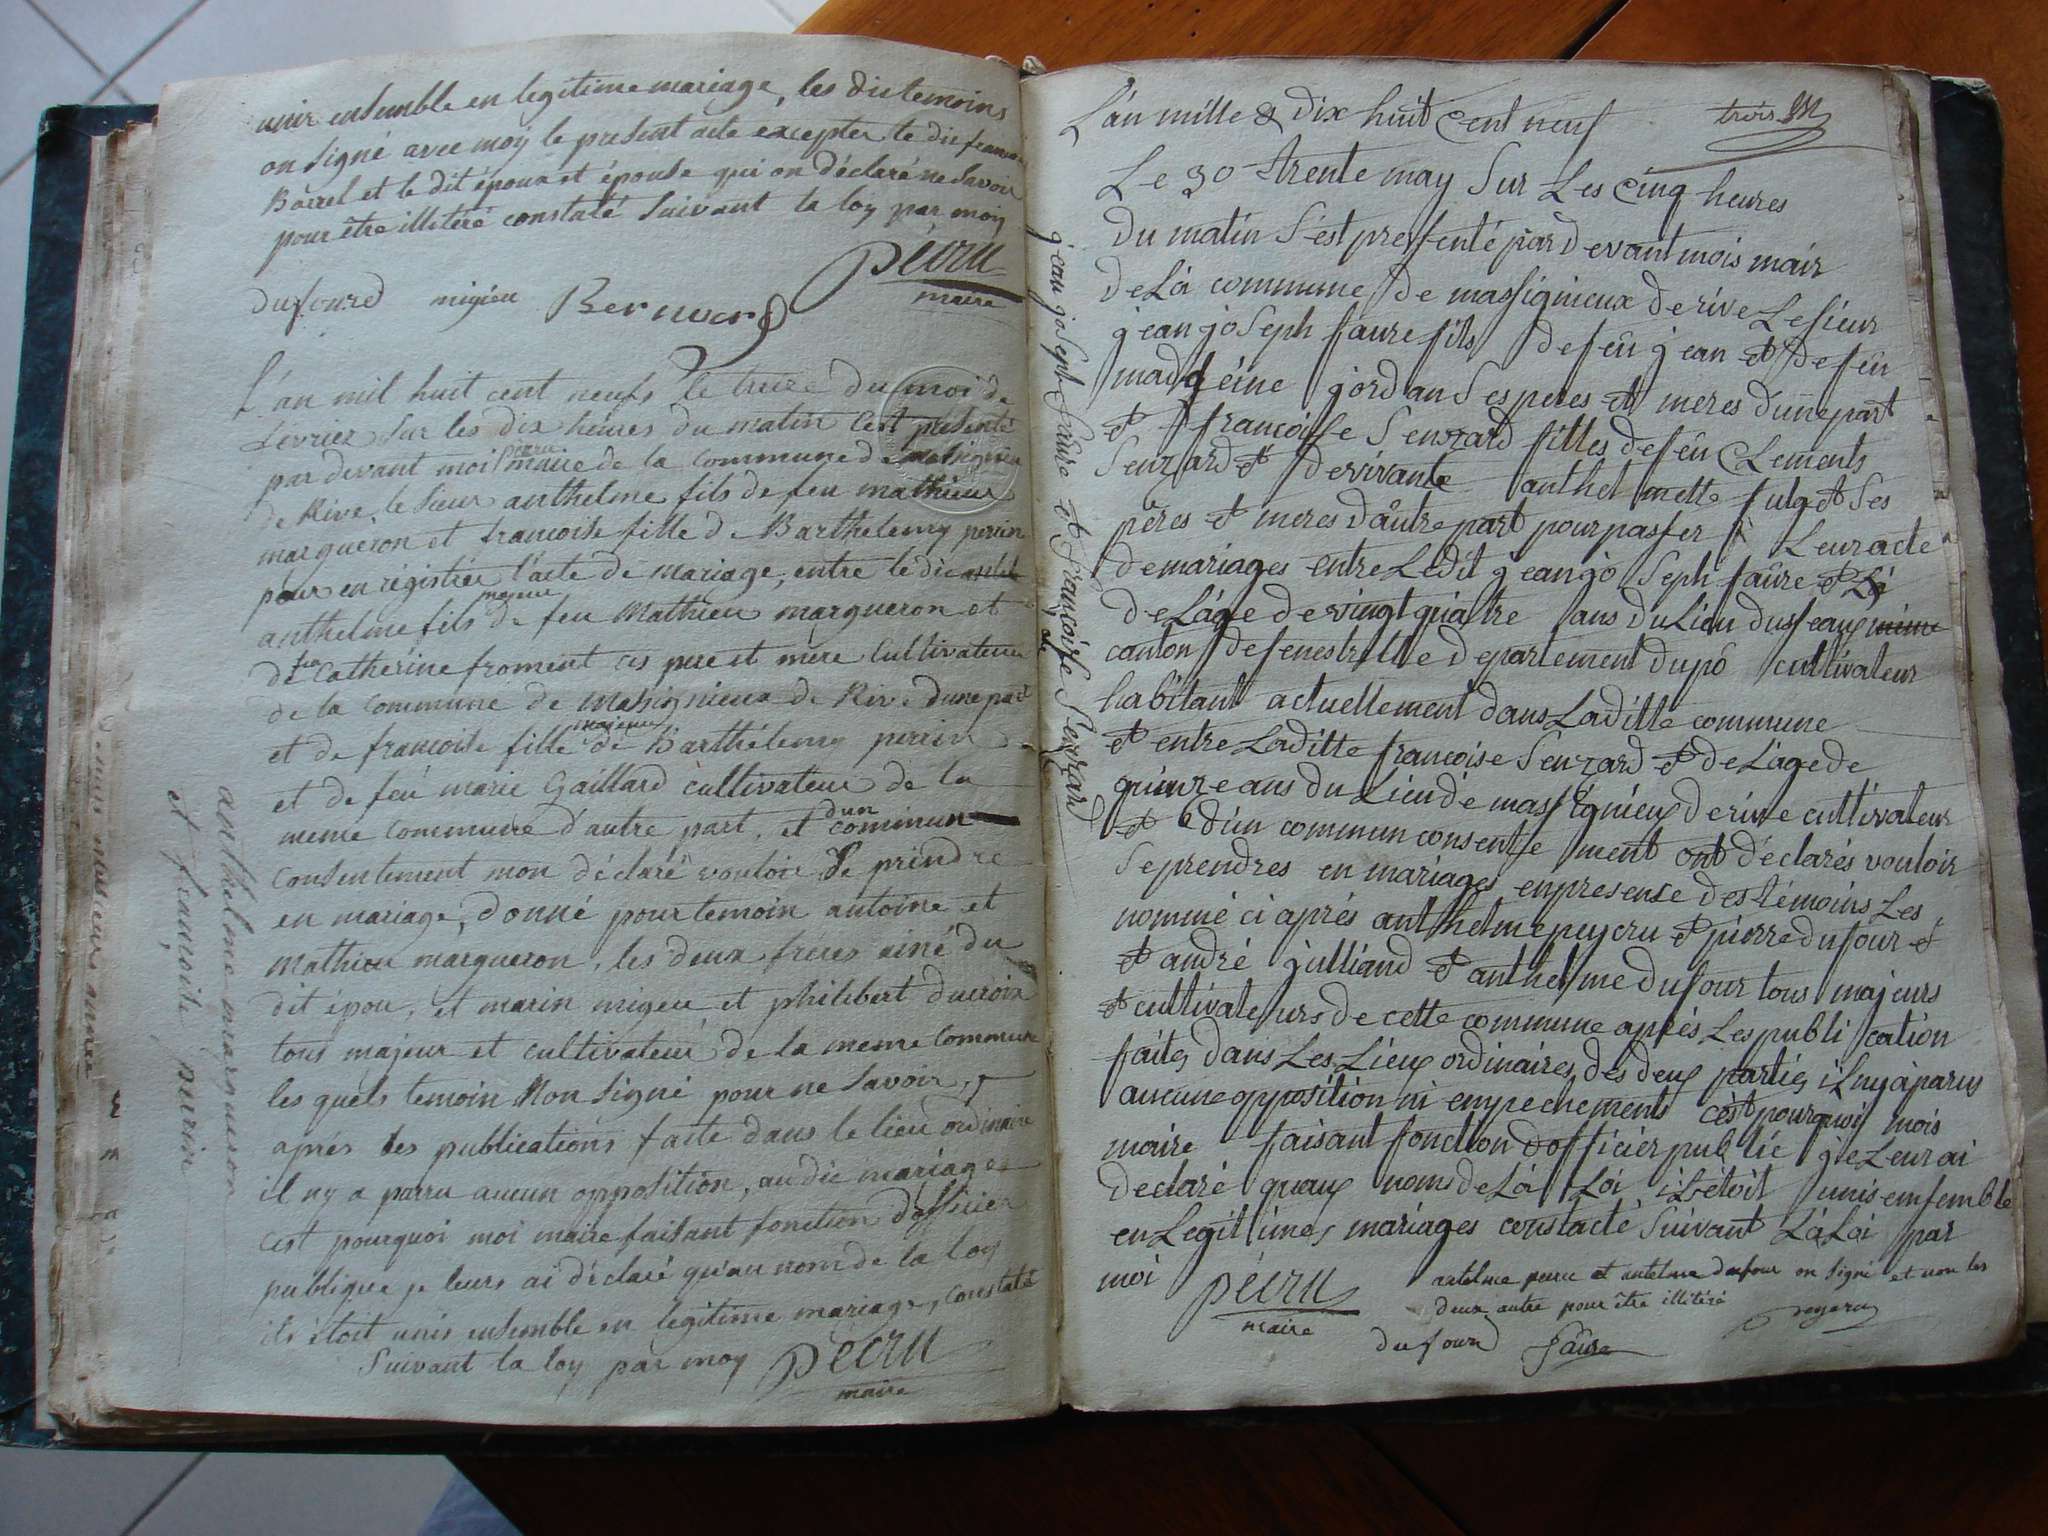 unir ensemble en legitime mariage, les dis temoins
on signé avec moy le present acte excepter le dis francois
Bàrrel et le dit époux et épouse qui on déclaré ne savoir
pour être illitéré constaté suivant la loy par moy
pécru
maire
dufourd migieu Bernard
L'an mil huit cent neufs le treize du moi de
févriez sur les dix heures du matin c'est présenté
par devant moi pécru maire de la commune de massignieu
de Rive, le sieur anthelme fils de feu mathieux
margueron et francoise fille de Barthelemy perrin
pour en régistrer l'acte de mariage, entre le dis
anthelme fils majeur de feu Mathieu margueron et
de Catherine froment ces pere et mère Cultivateur
de la commune de massignieux de Rive dune part
et de francoise fille majeure de Barthélemy perrin
et de feu marie Gaillard cultivateur de la
meme commune d'autre part, et d'un commun
consentement mon déclaré vouloir se prindre
en mariage, donné pour temoin antoine et
Mathieu margueron, les deux freres ainé du
dit épou, et marin migieu et philibert ducroix
tous majeur et cultivateur de la meme commune
les quels temoin Non signé pour ne savoir,
aprés les publications faite dans le lieu ordinaire
il ny a parru aucun opposition, au dic mariage
cest pourquoi moi maire faisant fonction dofficier
publique je leurs ai déclaré qu'au nom de la loy
ils étoit unis ensemble en legitime mariage, constaté
suivant la loy par moy pécru
maire
anthelme margueron
et francoise perrin
L'an mille & dix huit cent neuf trois
Le 30 trente may sur Les cinq heures
du matin s'est pressenté par devant mois mair
de La commune de massignieux de rive Le sieur
jean joseph faure fils de feû jean et de feû
madleine jordan ses peres et meres dunepart
et françoisse Senzard filles de feû Clements
Senzard et de vivante anthelmette fulget Ses
pêres et meres d'autre part pour passer à Leur acte
de mariages entre Ledit jean jo Seph faûre et Lá
de Láge de vingt quatre ans du Lieu dusseaux
canton de fenestrelle departement du pô cultivateur
habitant actuellement dans Laditte commune
et entre Laditte françoise Senzard et de Láge de
quinze ans du Lieu de massignieux de rive cultivateur
et d'un commun consente ment ont déclarés vouloir
se prendres en mariages en presence des témoins Les
nommé ci aprés anthelme peycru et pierre dufour et
et andré julliand et anthelme dufour tous majeurs
et cultivateurs de cette commune aprés Les publi cation
faites dans Les Lieux ordinaires des deux parties il ny à parus
aucune opposition ni empechements c'est pourquoi mois
maire faisant fonction dofficier public je Leur ai
declaré quaux noms de Lá Loi ils étoit unis ensemble
en Legitimes mariages constacté suivant Lá Loi par
moi pécru
maire
antelme pecru et antelme dufour on signé et non les
deux autre pour être illitéré
dufourd faûre peycru
jean joseph faure et françoisse Senzard